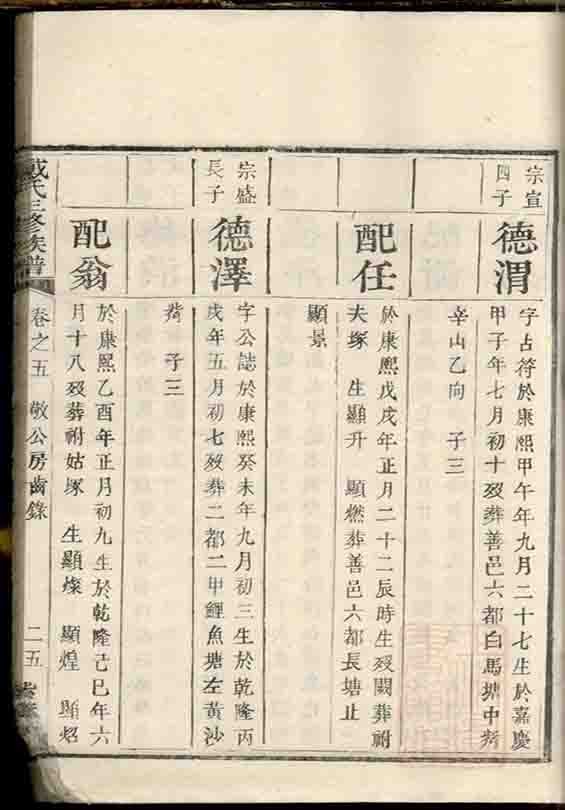 宗宣
四子
德渭
字占符於康熙甲午年九月二十七生於嘉慶
甲子年七月初十歿葬善邑六都白馬塘中
辛山乙向　子三
配任
於康熙戊戌年正月二十二辰時生歿闕葬祔
夫塚　生顯升　顯燃葬善邑六都長塘止
顯景
宗盛
長子
德澤
字公誌於康熙癸未年九月初三生於乾隆丙
戌年五月初七歿葬二都二甲鯉魚塘左黃沙
子三
配翁
於康熙乙酉年正月初九生於乾隆己巳年六
月十八歿葬祔姑塚　生顯燦　顯煌　顯炤
戴氏三修族譜
卷之五　敬公房齒錄
二五